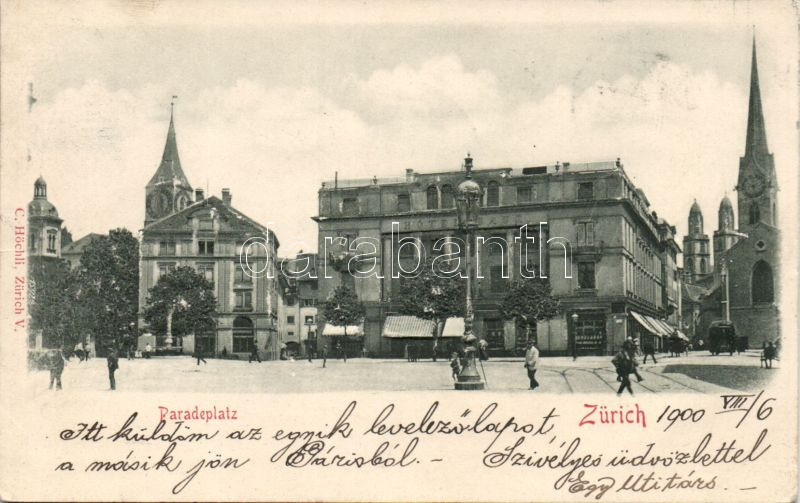 darabanth
C. Höchli, Zürich V.
Paradeplatz
Zürich 1900 VIII/6
Itt küldöm az egyik levelezőlapot,
a másik jön Párisból. –
Szívélyes üdvözlettel
Egy Utitárs. –